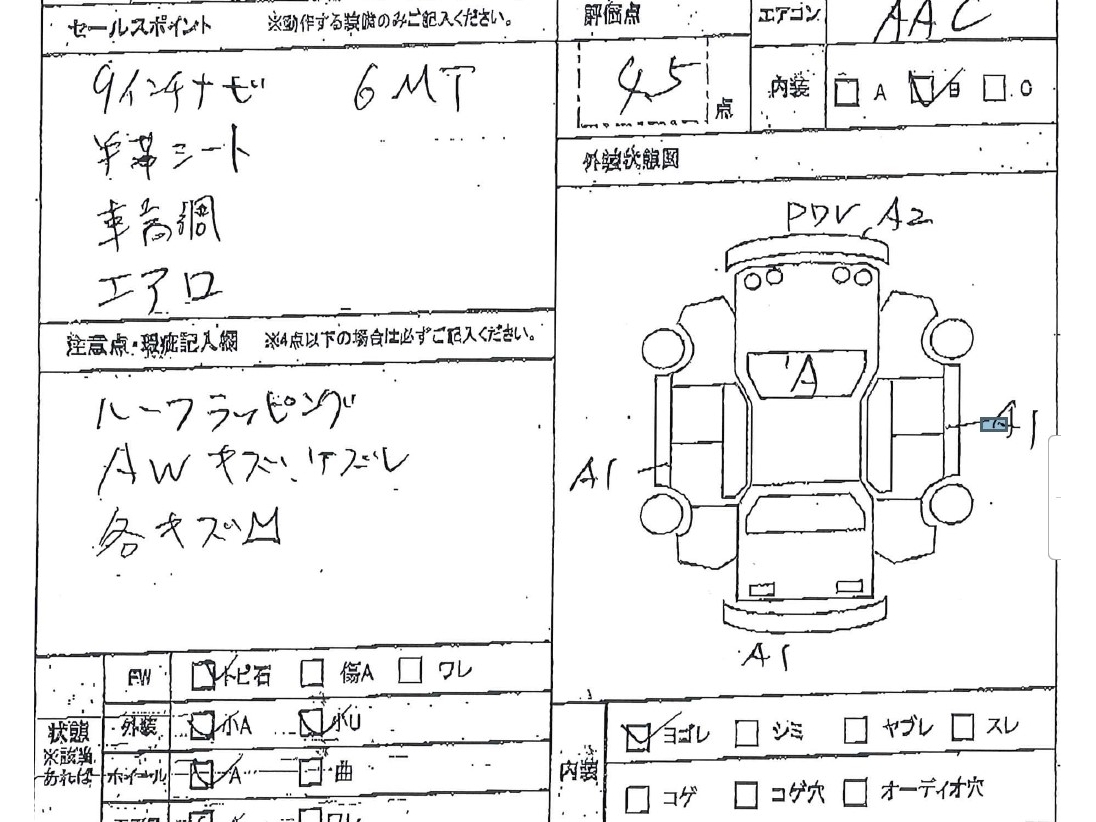 セールスポイント ※動作する装備のみご記入ください。
評価点 4.5 点
エアコン AAC
内装 A B C
9インチナビ 6MT
半革シート
車高調
エアロ
外装状態図
A2
A
A1
A1
A1
注意点・瑕疵記入欄 ※4点以下の場合は必ずご記入ください。
ルーフラッピング
AWキズ、ケズレ
各キズ凹
状態
※該当あれば
FW トビ石 傷A ワレ
外装 小A 小U
ホイール A 曲
エアロ ワレ
内装 ヨゴレ シミ ヤブレ スレ
コゲ コゲ穴 オーディオ穴